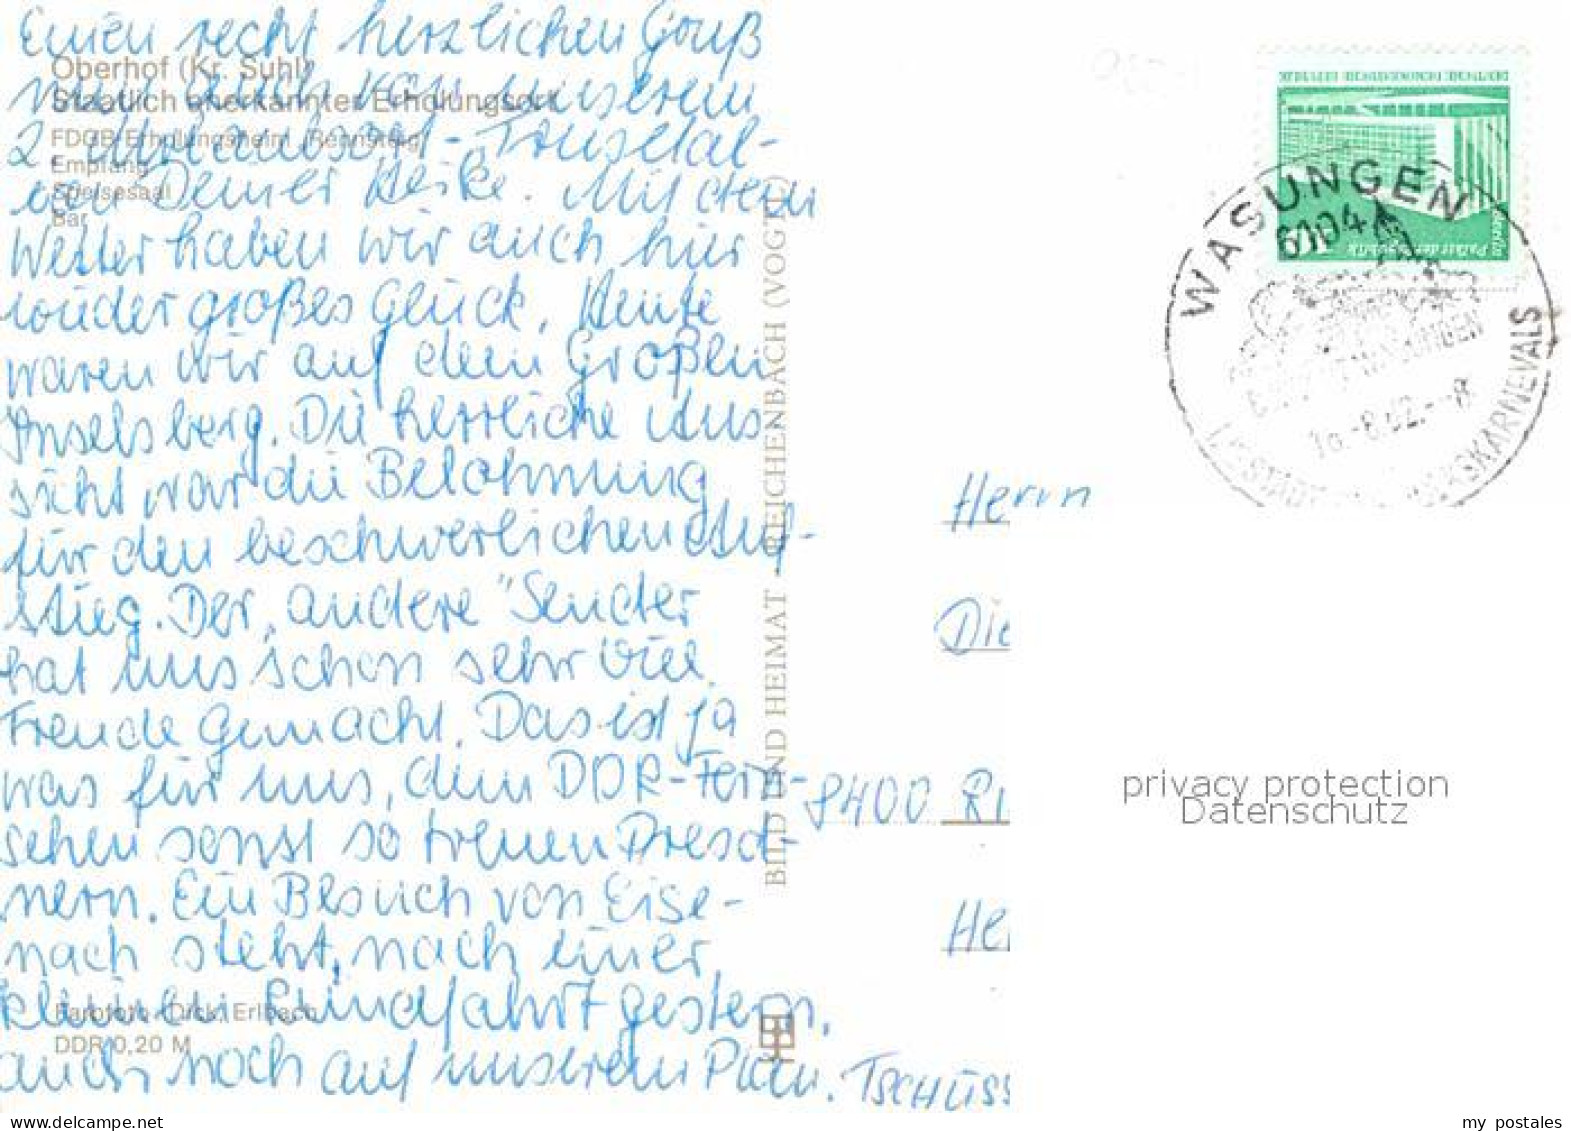 Einen recht herzlichen Gruß
nun auch von unserem
2. Urlaubsort - Trusetal -
von Deiner Heike. Mit dem
Wetter haben wir auch hier
wieder großes Glück. Heute
waren wir auf dem Großen
Inselsberg. Die herrliche Aus
sicht war die Belohnung
für den beschwerlichen Auf-
stieg. Der „andere" Sender
hat uns schon sehr viel
Freude gemacht. Das ist ja
was für uns, dem DDR-Fern-
sehen sonst so treuen Dresd-
nern. Ein Besuch von Eise-
nach steht, nach einer
kleinen Rundfahrt gestern,
auch noch auf unserem Plan. TSCHÜSS
Oberhof (Kr. Suhl)
Staatlich anerkannter Erholungsort
FDGB-Erholungsheim „Rennsteig"
Empfang
Speisesaal
Bar
Farbfoto: Dick, Erlbach
DDR 0,20 M
BILD UND HEIMAT REICHENBACH (VOGTL)
DEUTSCHE DEMOKRATISCHE REPUBLIK
10
Berlin
Palast der Republik
WASUNGEN
6104
VOLKSKARNEVALS
Herrn
Die
8400 Ri
He
privacy protection
Datenschutz
my_postales